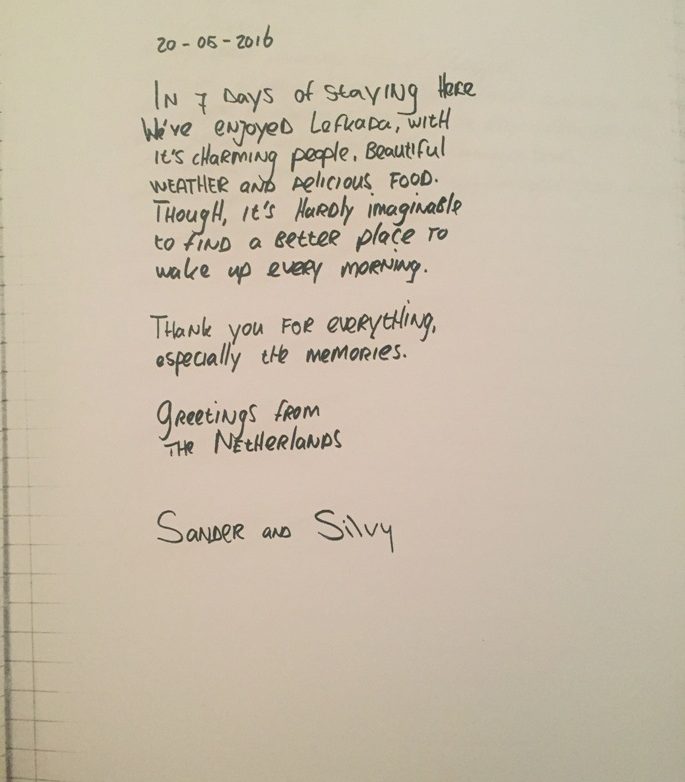 20-05-2016
In 7 Days of staying Here
We've enjoyed Lefkada, with
it's charming people, Beautiful
WEATHER and Delicious FOOD.
Though, it's Hardly imaginable
to find a Better place to
wake up every morning.
Thank you for everything,
especially the memories.
Greetings from
The Netherlands
Sander and Silvy